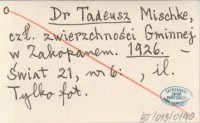 Dr Tadeusz Mischke,
czł. zwierzchności Gminnej
w Zakopanem. 1926. -
Świat 21, nr 6: , il.
Tylko fot.